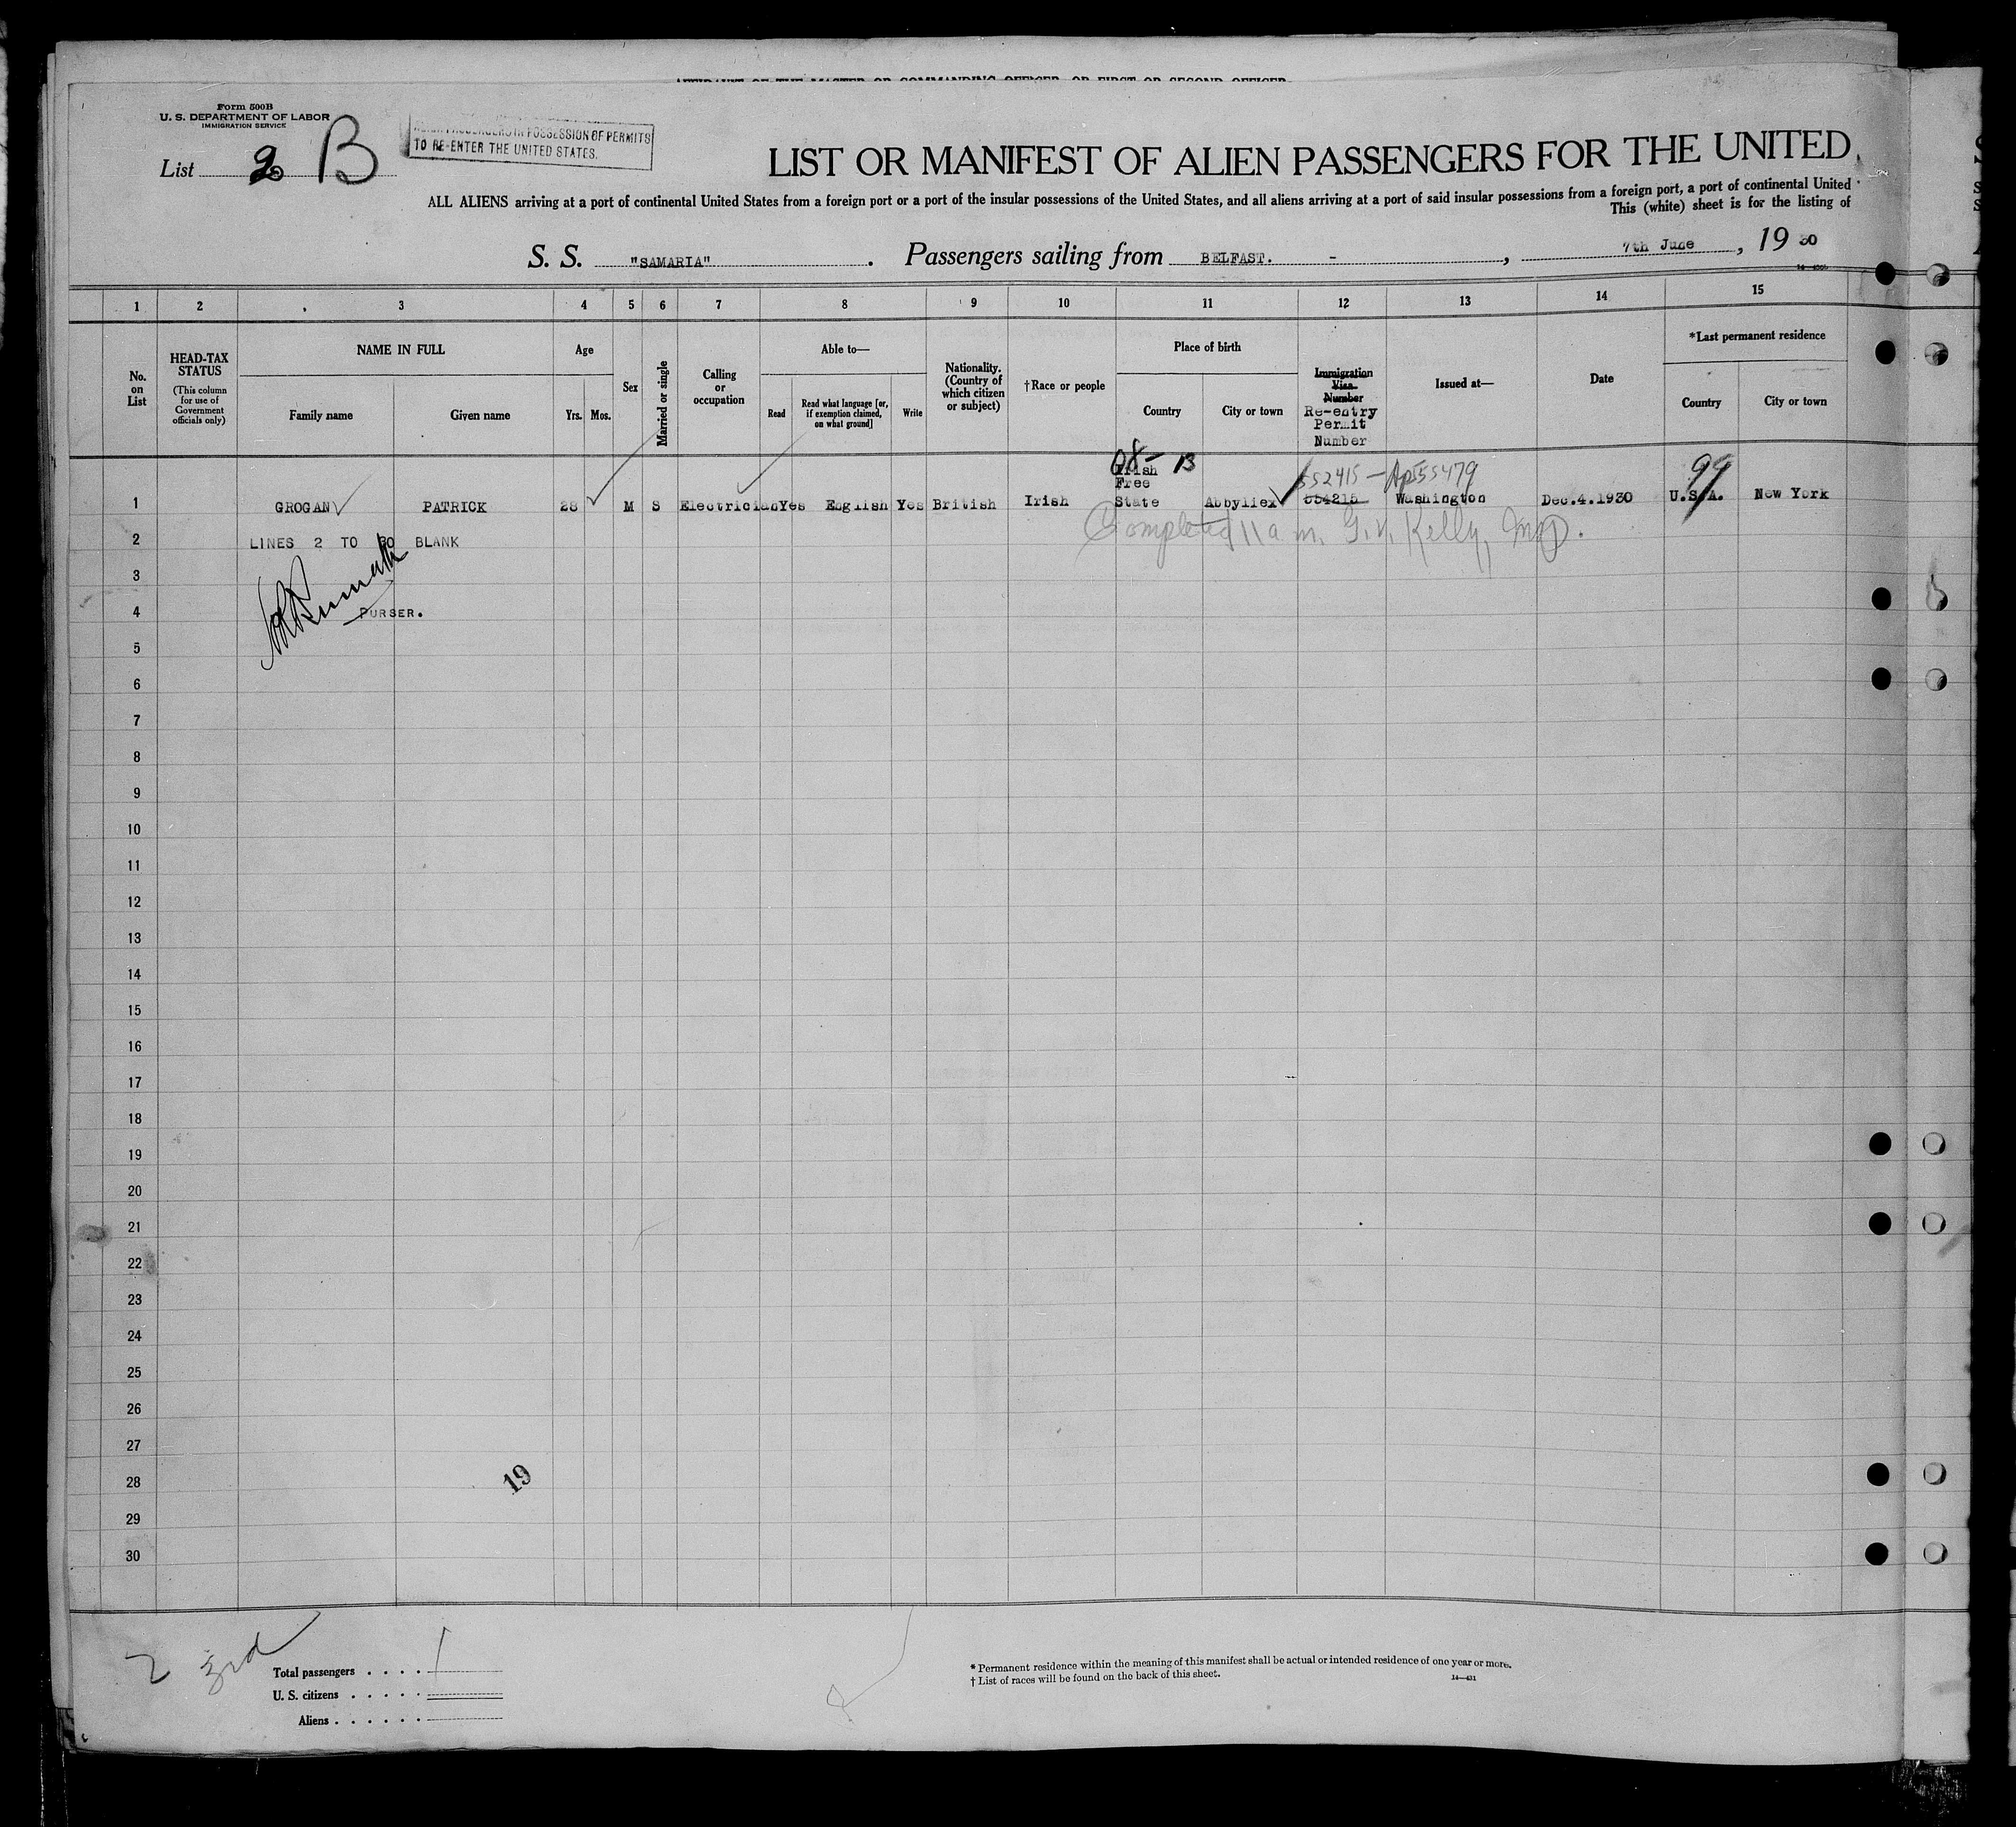 AFFIDAVIT OF THE MASTER OR COMMANDING OFFICER, OR FIRST OR SECOND OFFICER
Form 500B
U. S. DEPARTMENT OF LABOR
IMMIGRATION SERVICE
List B
POSSESSION OF PERMITS
TO RE-ENTER THE UNITED STATES.
LIST OR MANIFEST OF ALIEN PASSENGERS FOR THE UNITED
ALL ALIENS arriving at a port of continental United States from a foreign port or a port of the insular possessions of the United States, and all aliens arriving at a port of said insular possessions from a foreign port, a port of continental United
This (white) sheet is for the listing of
S. S. "SAMARIA" . Passengers sailing from BELFAST. - , 7th June , 19 30
1 2 3 4 5 6 7 8 9 10 11 12 13 14 15
No. on List
HEAD-TAX STATUS
(This column for use of Government officials only)
NAME IN FULL
Family name
Given name
Age
Yrs. Mos.
Sex
Married or single
Calling or occupation
Able to—
Read
Read what language [or, if exemption claimed, on what ground]
Write
Nationality. (Country of which citizen or subject)
†Race or people
Place of birth
Country
City or town
Immigration Visa Number
Re-entry Permit Number
Issued at—
Date
*Last permanent residence
Country
City or town
13
552415 - Ap 55479
99
1 GROGAN PATRICK 28 M S Electrician Yes English Yes British Irish Irish Free State Abbyliex 554215 Washington Dec.4.1930 U.S.A. New York
Completed 11 a m. G.V. Kelly,
2 LINES 2 TO 30 BLANK
3
4 PURSER.
5
6
7
8
9
10
11
12
13
14
15
16
17
18
19
20
21
22
23
24
25
26
27
28
19
29
30
2 3rd
Total passengers . . . . 1
U. S. citizens . . . . .
Aliens . . . . . .
* Permanent residence within the meaning of this manifest shall be actual or intended residence of one year or more.
† List of races will be found on the back of this sheet.
14—431